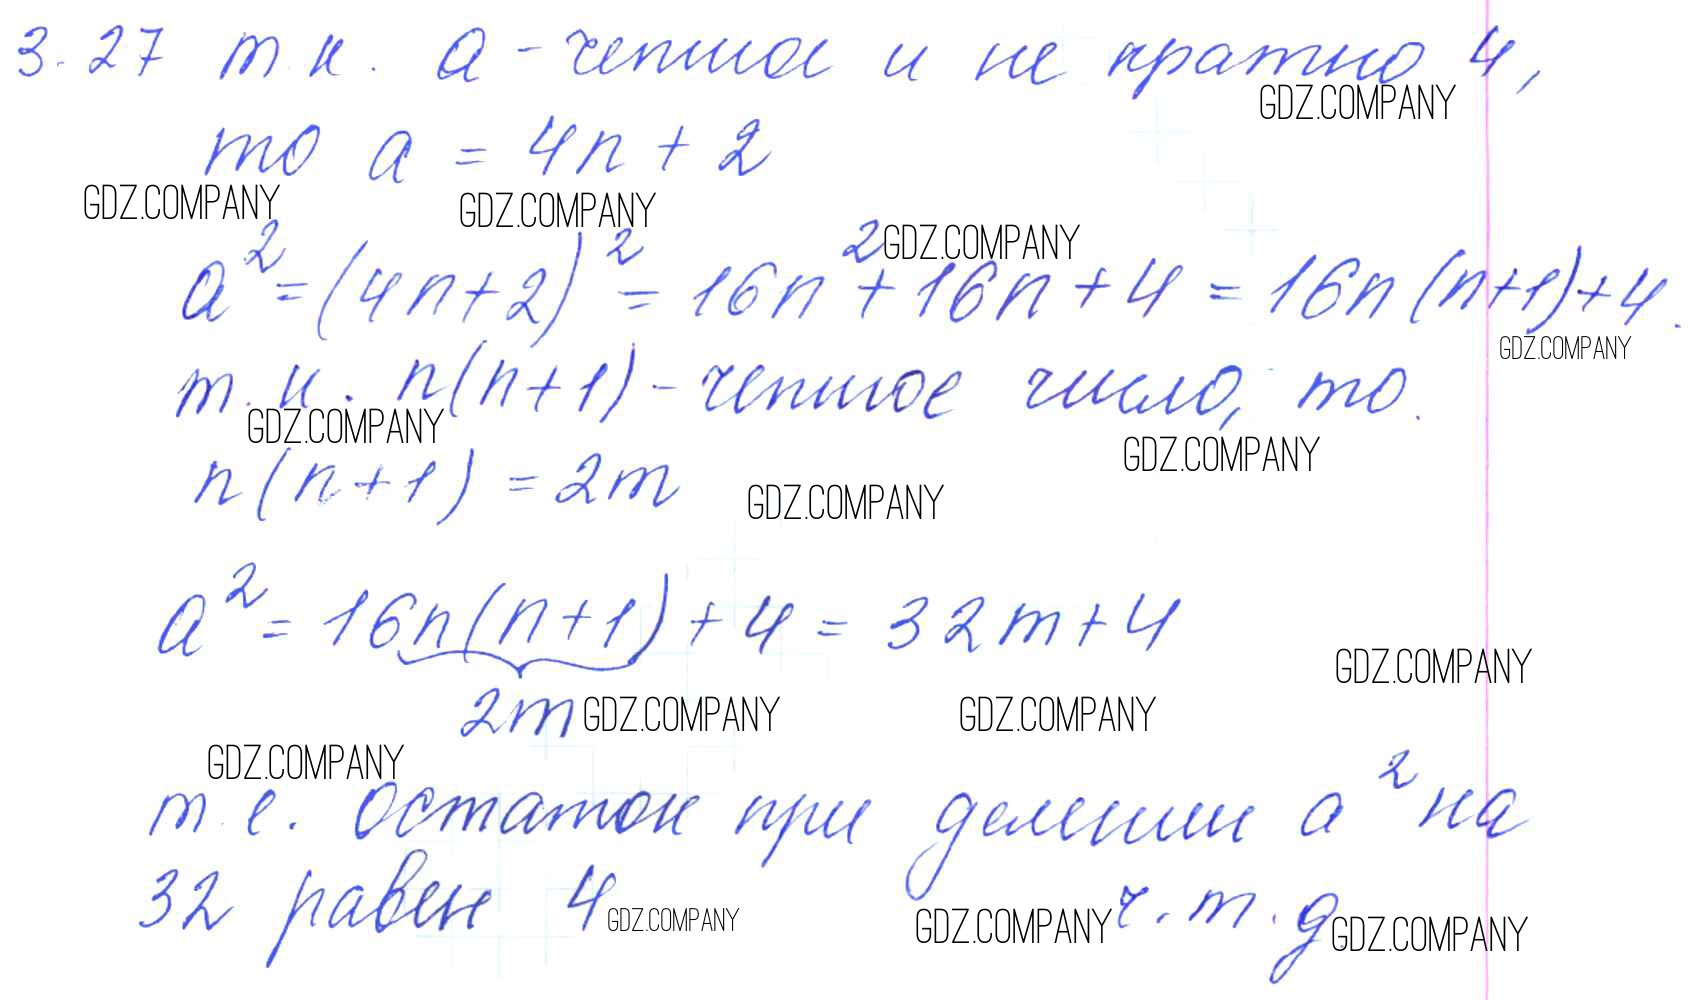 3.27 т.к. a - четное и не кратно 4,
GDZ.COMPANY
то a = 4n + 2
GDZ.COMPANY GDZ.COMPANY GDZ.COMPANY
a² = (4n+2)² = 16n² + 16n + 4 = 16n(n+1)+4.
GDZ.COMPANY
т.к. n(n+1) - четное число, то
GDZ.COMPANY GDZ.COMPANY
n(n+1) = 2m
GDZ.COMPANY
a² = 16n(n+1) + 4 = 32m + 4
GDZ.COMPANY
2m GDZ.COMPANY GDZ.COMPANY
GDZ.COMPANY
т.е. остаток при делении a² на
32 равен 4 ч.т.д
GDZ.COMPANY GDZ.COMPANY GDZ.COMPANY